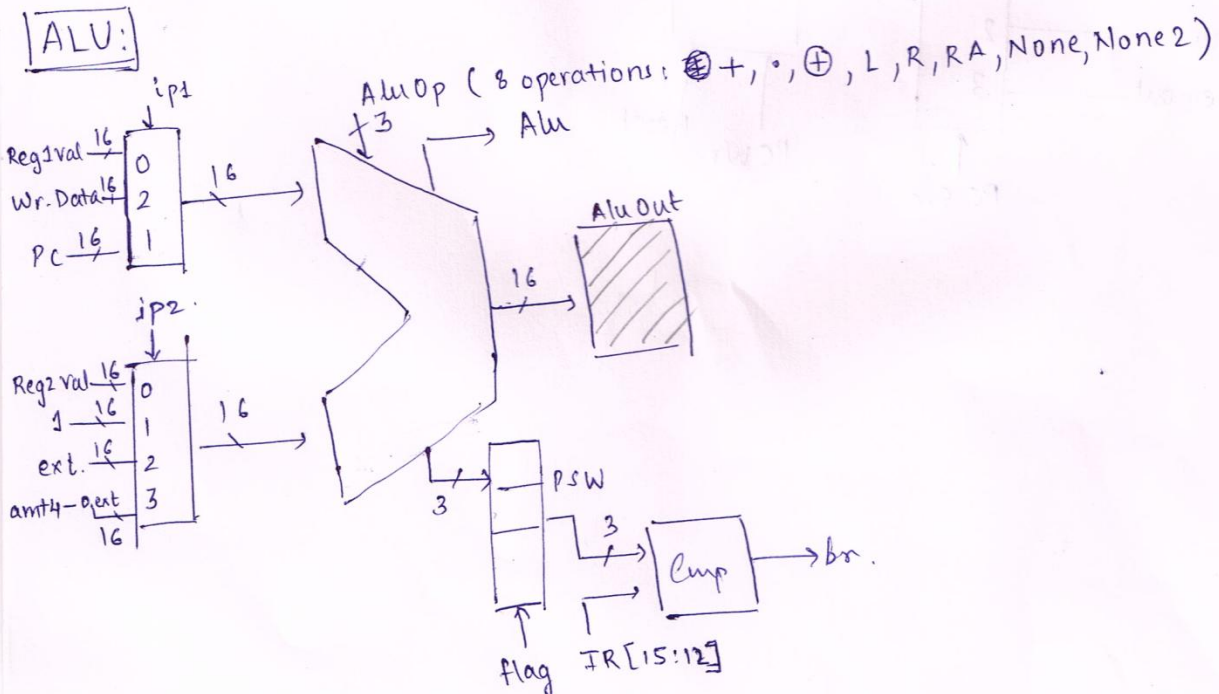 ALU:
AluOp ( 8 operations: +, ·, ⊕, L, R, RA, None, None2)
ip1
3
Alu
Reg1val 16
0
Wr.Data 16
2
PC 16
1
16
Alu Out
16
ip2.
Reg2val 16
0
1 16
1
ext. 16
2
amt4-0,ext
3
16
16
3
PSW
3
Cmp
br.
flag
IR[15:12]